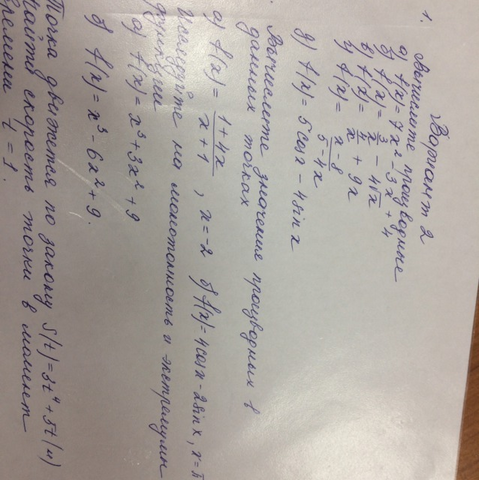 Вариант 2
1. Вычислите производные
а) f(x) = 7x² - 3x + 4
б) f(x) = x/3 - 4√x
в) f(x) = 3/x + 9x
г) f(x) = x-8/5-4x
д) f(x) = 5cosx - 4sinx
Вычислите значения производных в
данных точках
а) f(x) = 1+4x/x+1, x = -2 б) f(x) = 4cosx - 2sinx, x = π
исследуйте на монотонность и экстремумы
функции
а) f(x) = x³ + 3x² + 9
б) f(x) = x³ - 6x² + 9.
Точка движется по закону S(t) = 3t² + 5t (м)
найти скорость точки в момент
времени t = 1.